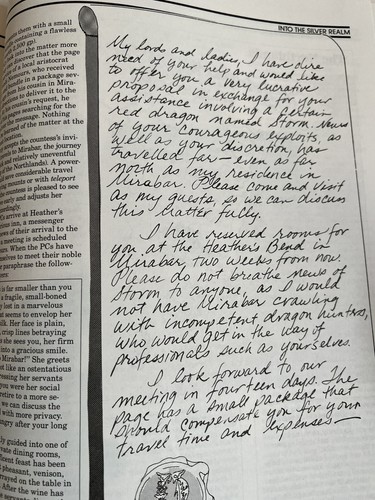 INTO THE SILVER REALM
them with a small
containing a flawless
2,500 gp)
into the matter more
discover that the page
of a local aristocrat
who received
in a package sev-
his cousin in Mira-
to deliver it to the
cousin's request, he
pages searching for the
message. Nothing
learned of the matter at the
accepts the countess's invi-
Mirabar, the journey
and relatively uneventful
of the Northlands). A power-
considerable travel
mounts or with teleport
countess is pleased to see
early and adjusts her
arrive at Heather's
inn, a messenger
of their arrival to the
meeting is scheduled
When the PCs have
selves to meet their noble
paraphrase the follow-
is far smaller than you
a fragile, small-boned
lost in a marvelous
seems to envelop her
Her face is plain,
crisp lines betraying
she sees you, her firm
into a gracious smile.
Mirabar!" She greets
like an ostentatious
her servants
you were her social
retire to a more se-
we can discuss the
with more privacy.
hungry after your long
guided into one of
private dining rooms,
feast has been
pheasant, venison,
arrayed on the table in
After the wine has
My lords and ladies, I have dire
need of your help and would like
to offer you a very lucrative
proposal in exchange for your
assistance involving a certain
red dragon named Storm. News
of your courageous exploits, as
well as your discretion, has
travelled far — even as far
north as my residence in
Mirabar. Please come and visit
as my guests, so we can discuss
this matter fully.
I have reserved rooms for
you at the Heather's Bend in
Mirabar two weeks from now.
Please do not breathe news of
Storm to anyone, as I would
not have Mirabar crawling
with incompetent dragon hunters,
who would get in the way of
professionals such as yourselves.
I look forward to our
meeting in fourteen days. The
page has a small package that
should compensate you for your
travel time and expenses —